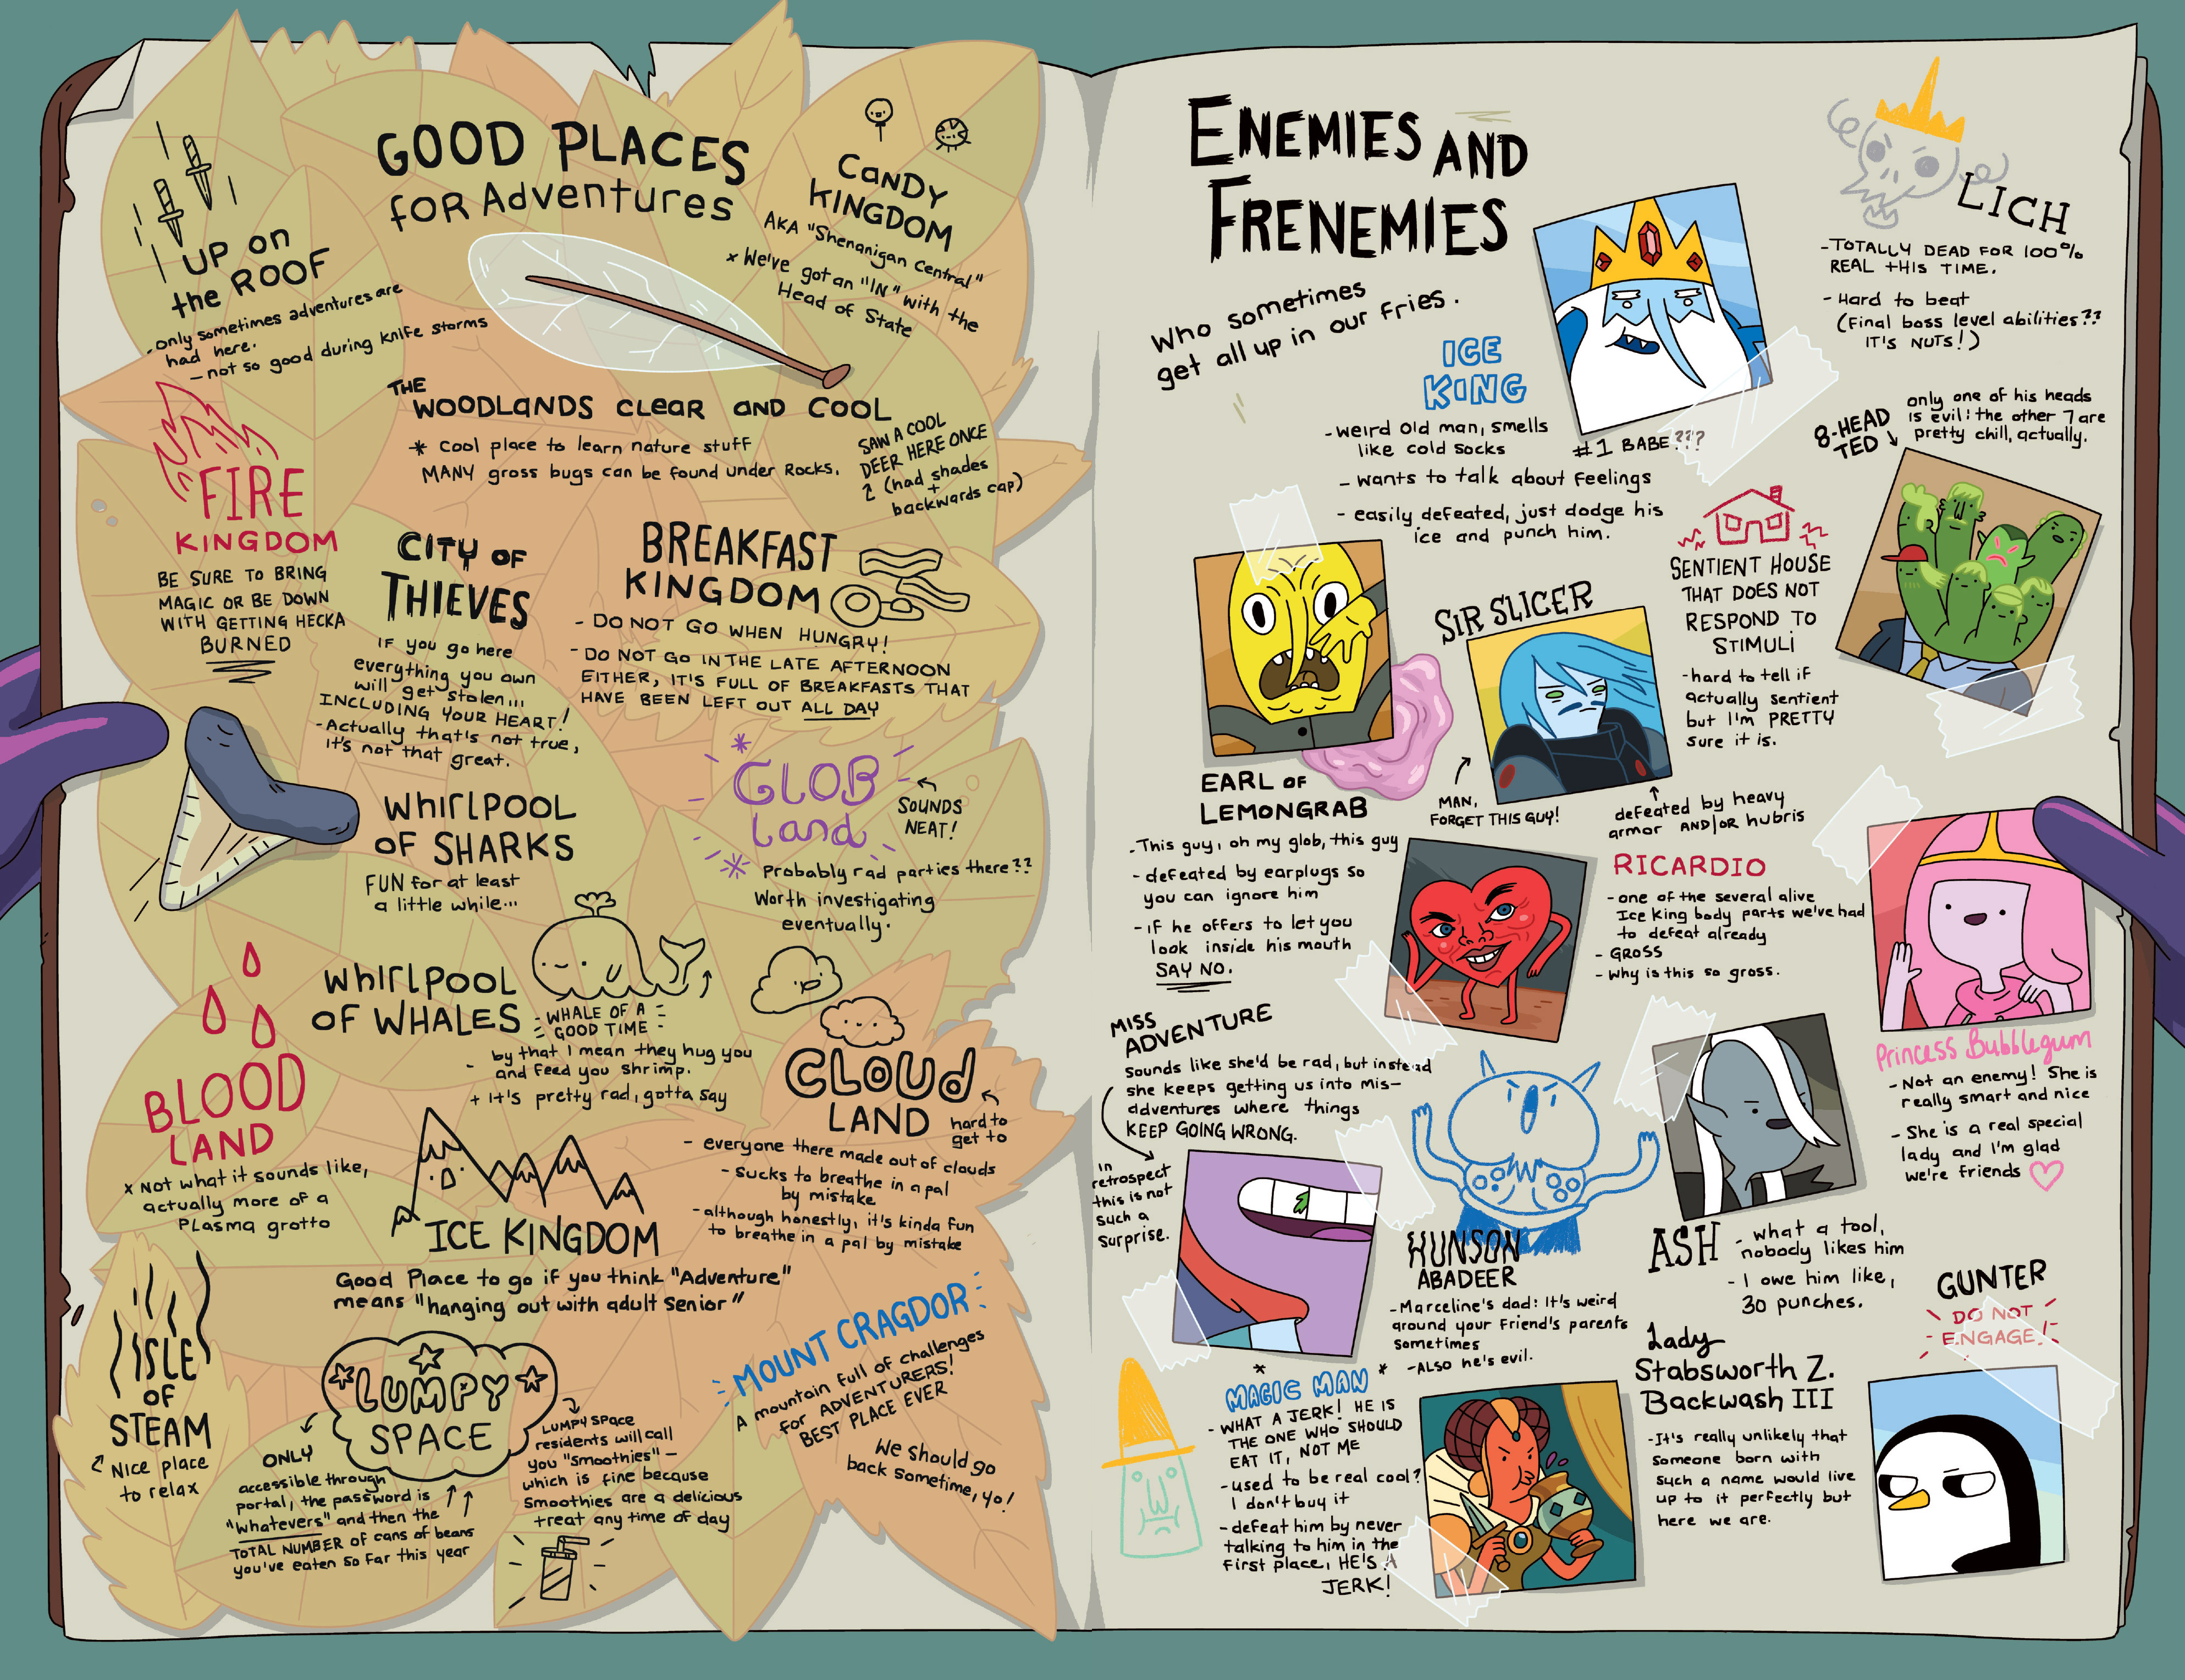 GOOD PLACES
FOR Adventures
UP on
the ROOF
- only sometimes adventures are
had here.
- not so good during knife storms
CANDY
KINGDOM
AKA "Shenanigan Central"
x We've got an "IN" with the
Head of State
THE
WOODLANDS CLEAR AND COOL
* Cool place to learn nature stuff
MANY gross bugs can be found under Rocks.
SAW A COOL
DEER HERE ONCE
(had shades
+
backwards cap)
FIRE
KINGDOM
BE SURE TO BRING
MAGIC OR BE DOWN
WITH GETTING HECKA
BURNED
CITY OF
THIEVES
IF you go here
everything you own
will get stolen...
INCLUDING YOUR HEART!
- Actually that's not true,
it's not that great.
BREAKFAST
KINGDOM
- DO NOT GO WHEN HUNGRY!
- DO NOT GO IN THE LATE AFTERNOON
EITHER, IT'S FULL OF BREAKFASTS THAT
HAVE BEEN LEFT OUT ALL DAY
GLOB
Land
SOUNDS
NEAT!
Probably rad parties there??
Worth investigating
eventually.
Whirlpool
OF SHARKS
FUN for at least
a little while...
Whirlpool
OF WHALES
- WHALE OF A -
GOOD TIME
- by that I mean they hug you
and feed you shrimp.
+ it's pretty rad, gotta say
BLOOD
LAND
x Not what it sounds like,
actually more of a
Plasma grotto
CLOUD
LAND
hard to
get to
- everyone there made out of clouds
- sucks to breathe in a pal
by mistake
- although honestly, it's kinda fun
to breathe in a pal by mistake
ICE KINGDOM
Good Place to go if you think "Adventure"
means "hanging out with adult Senior"
ISLE
OF
STEAM
Nice place
to relax
LUMPY
SPACE
ONLY
accessible through
portal, the password is
"whatevers" and then the
TOTAL NUMBER of cans of beans
you've eaten so far this year
LUMPY SPACE
residents will call
you "Smoothies" -
which is fine because
Smoothies are a delicious
treat any time of day
MOUNT CRAGDOR
A mountain full of challenges
for ADVENTURERS!
BEST PLACE EVER
We should go
back sometime, yo!
ENEMIES AND
FRENEMIES
Who sometimes
get all up in our fries.
ICE
KING
- weird old man, smells
like cold socks
- wants to talk about Feelings
- easily defeated, just dodge his
ice and punch him.
#1 BABE???
LICH
- TOTALLY DEAD FOR 100%
REAL THIS TIME.
- Hard to beat
(Final boss level abilities??
IT'S NUTS!)
8-HEAD
TED
only one of his heads
is evil: the other 7 are
pretty chill, actually.
SENTIENT HOUSE
THAT DOES NOT
RESPOND TO
STIMULI
- hard to tell if
actually sentient
but I'm PRETTY
sure it is.
EARL OF
LEMONGRAB
- This guy, oh my glob, this guy
- defeated by earplugs so
you can ignore him
- IF he offers to let you
look inside his mouth
SAY NO.
SIR SLICER
MAN,
FORGET THIS GUY!
defeated by heavy
armor AND/OR hubris
RICARDIO
- one of the several alive
Ice King body parts we've had
to defeat already
- GROSS
- Why is this so gross.
Princess Bubblegum
- Not an enemy! She is
really smart and nice
- She is a real special
lady and I'm glad
we're friends
MISS
ADVENTURE
Sounds like she'd be rad, but instead
she keeps getting us into mis-
adventures where things
KEEP GOING WRONG.
in
retrospect
this is not
such a
surprise.
HUNSON
ABADEER
- Marceline's dad: It's weird
around your friend's parents
sometimes
- ALSO he's evil.
ASH
- what a tool,
nobody likes him
- I owe him like,
30 punches.
* MAGIC MAN *
- WHAT A JERK! HE IS
THE ONE WHO SHOULD
EAT IT, NOT ME
- used to be real cool?
I don't buy it
- defeat him by never
talking to him in the
first place, HE'S A
JERK!
Lady
Stabsworth Z.
Backwash III
- It's really unlikely that
someone born with
such a name would live
up to it perfectly but
here we are.
GUNTER
DO NOT
ENGAGE!